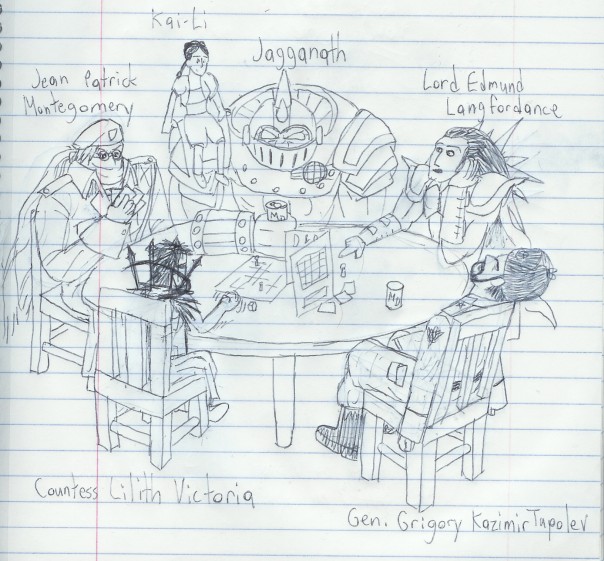 Kai-Li
Jagganath
Jean Patrick
Montegomery
Lord Edmund
Langfordance
MD
D&D
MD
Countess Lilith Victoria
Gen. Grigory Kazimir Tupolev